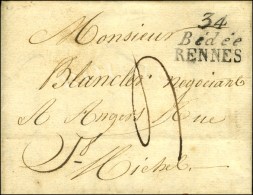 Monsieur
34
Bédée
RENNES
Blancler negociant
A Angers Rue
St Michel